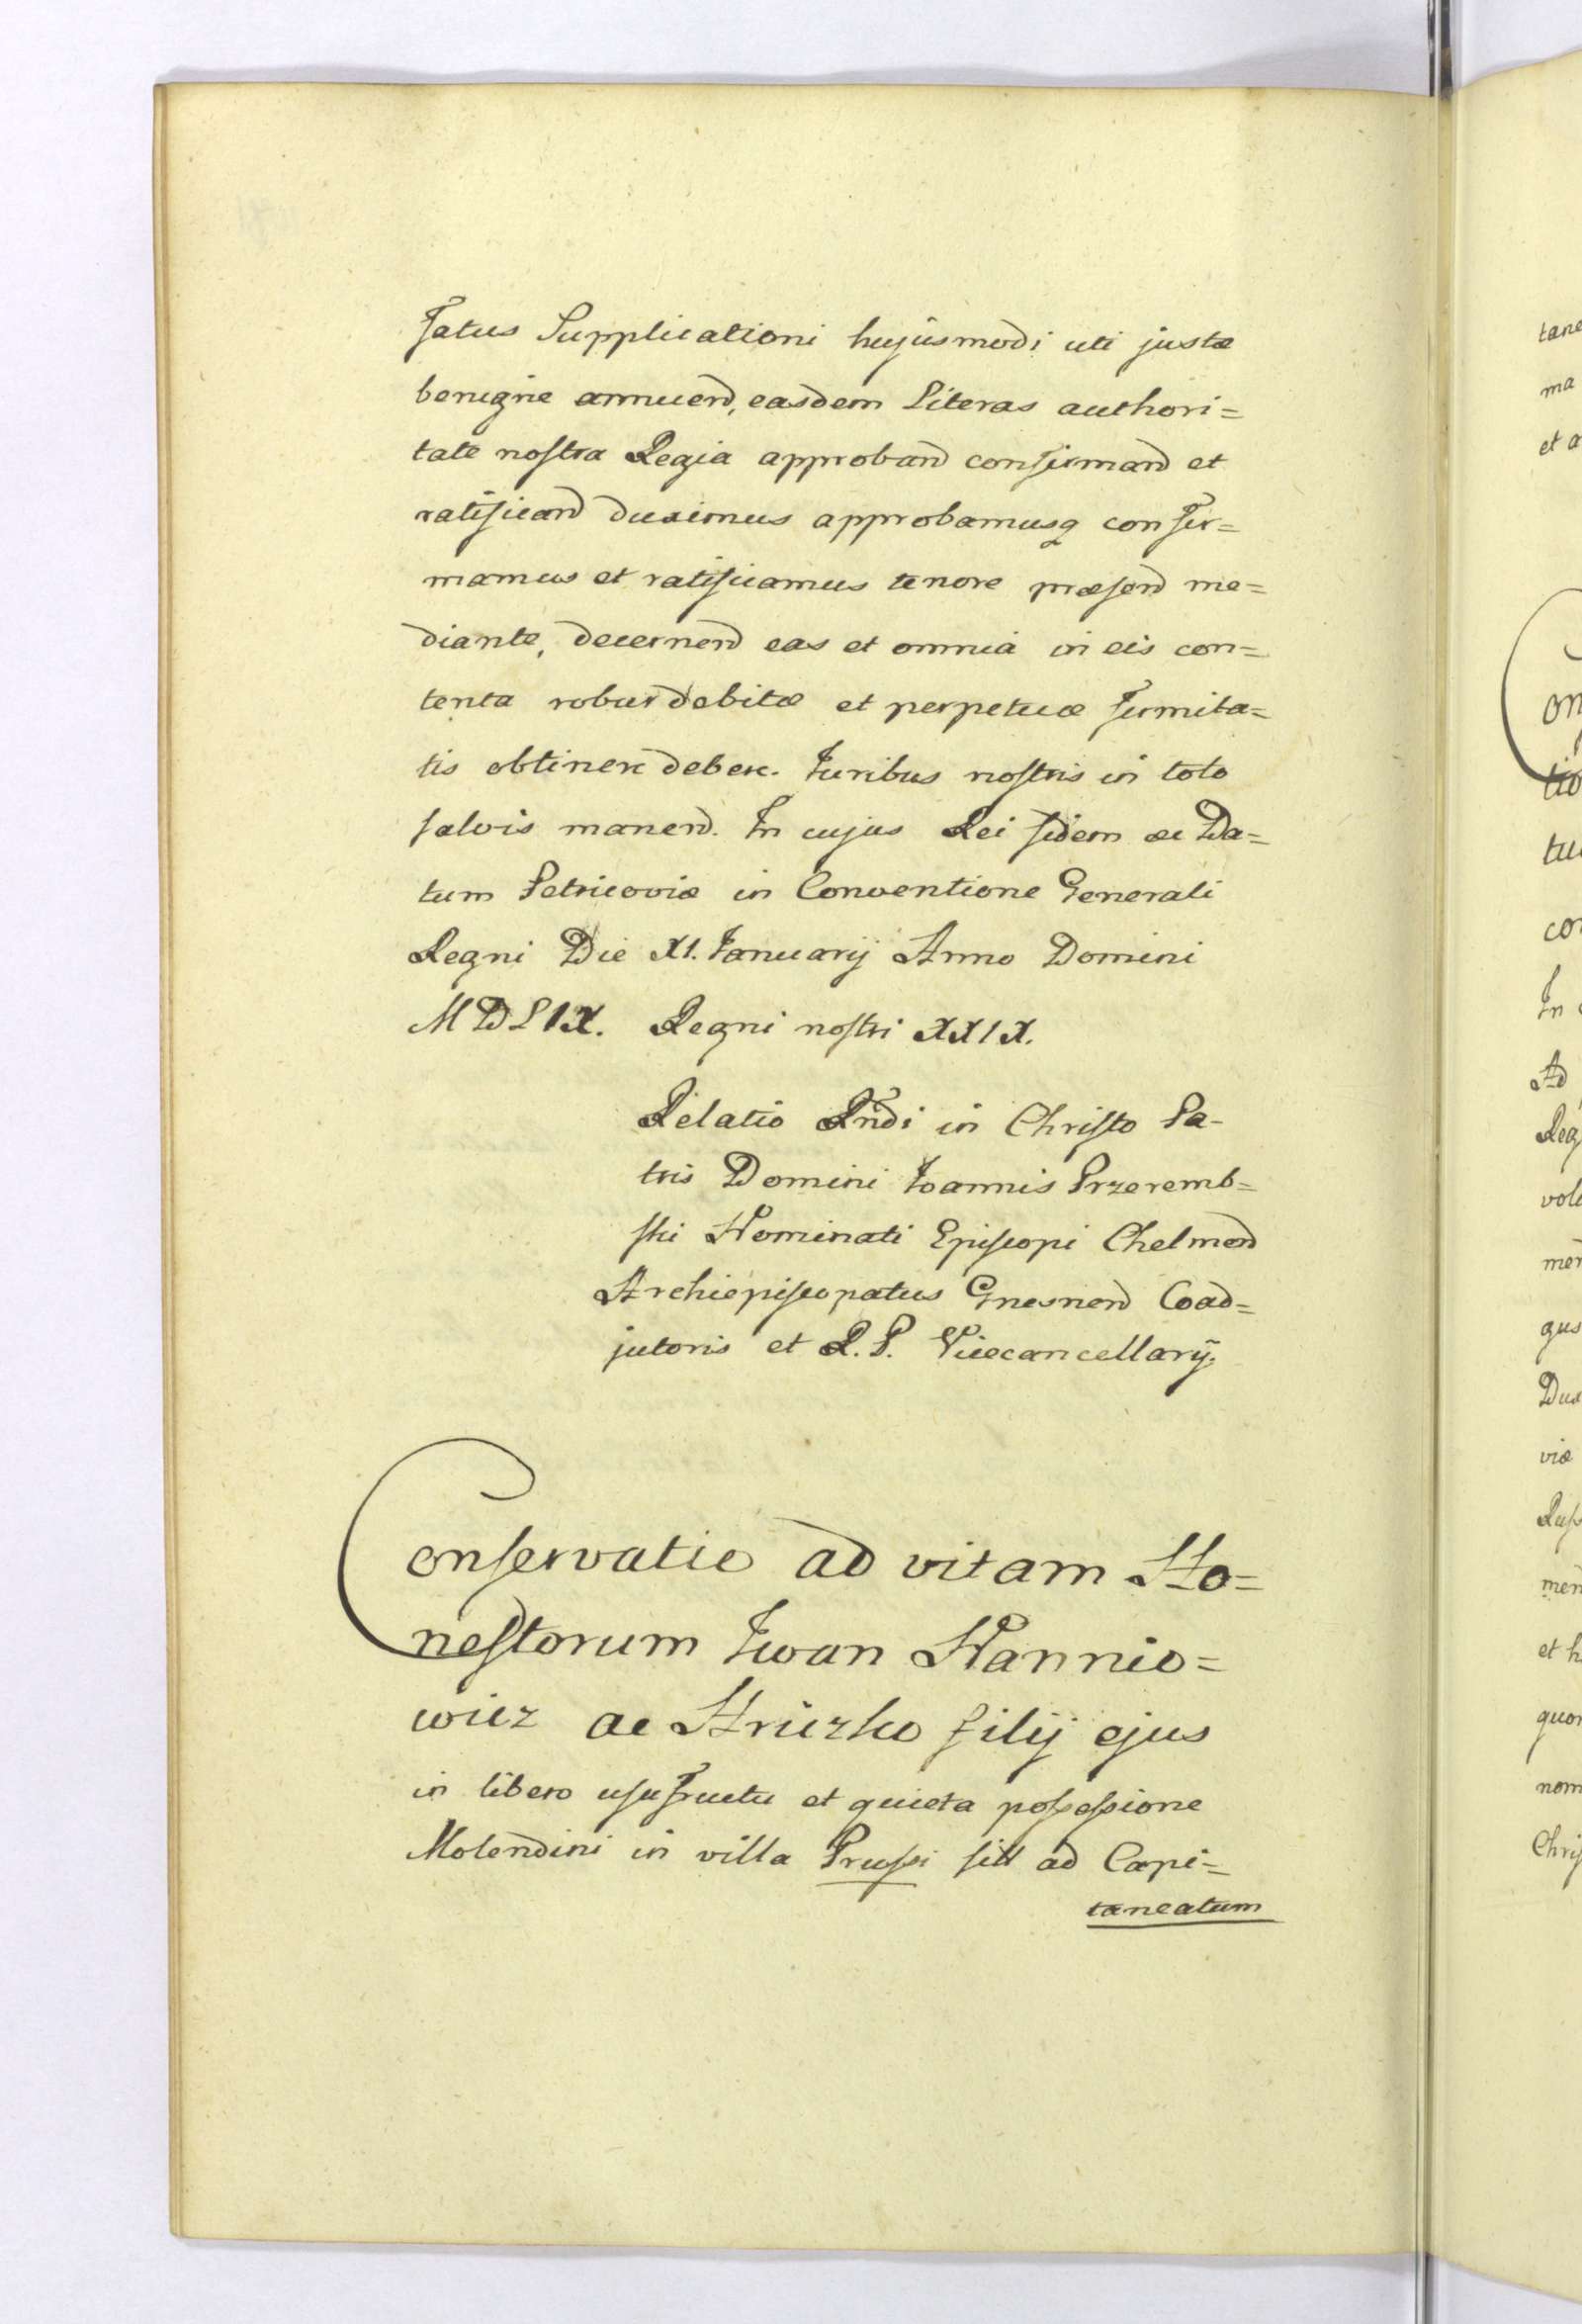 fatus Supplicationi hujusmodi uti justæ
benigne annuend, easdem Literas authori=
tate nostra Regia approband confirmand et
ratificand duximus approbamusq confir=
mamus et ratificamus tenore præsend me=
diante, decernend eas et omnia in eis con=
tenta robur debitæ et perpetuæ firmita=
tis obtinere debere. Juribus nostris in toto
salvis manend. In cujus Rei fidem ac Da=
tum Petricoviæ in Conventione Generali
Regni Die XI. Januarij Anno Domini
MDLIX. Regni nostri XXIX.
Relatio Rndi in Christo Pa-
tris Domini Joannis Przeremb=
ski Nominati Episcopi Chelmend
Archiepiscopatus Gnesnend Coad=
jutoris et R. P. Vicecancellarij.
Conservatio ad vitam Ho=
nestorum Iwan Nannio=
wicz ac Hriczko filij ejus
in libero usufructu et quieta possessione
Molendini in villa Prussi sitt ad Capi=
taneatum
tane
ma
et a
on
tio
tu
con
In
Ad
Reg
volu
men
gus
Dux
viæ
Russ
men
et h
quor
nom
Chris